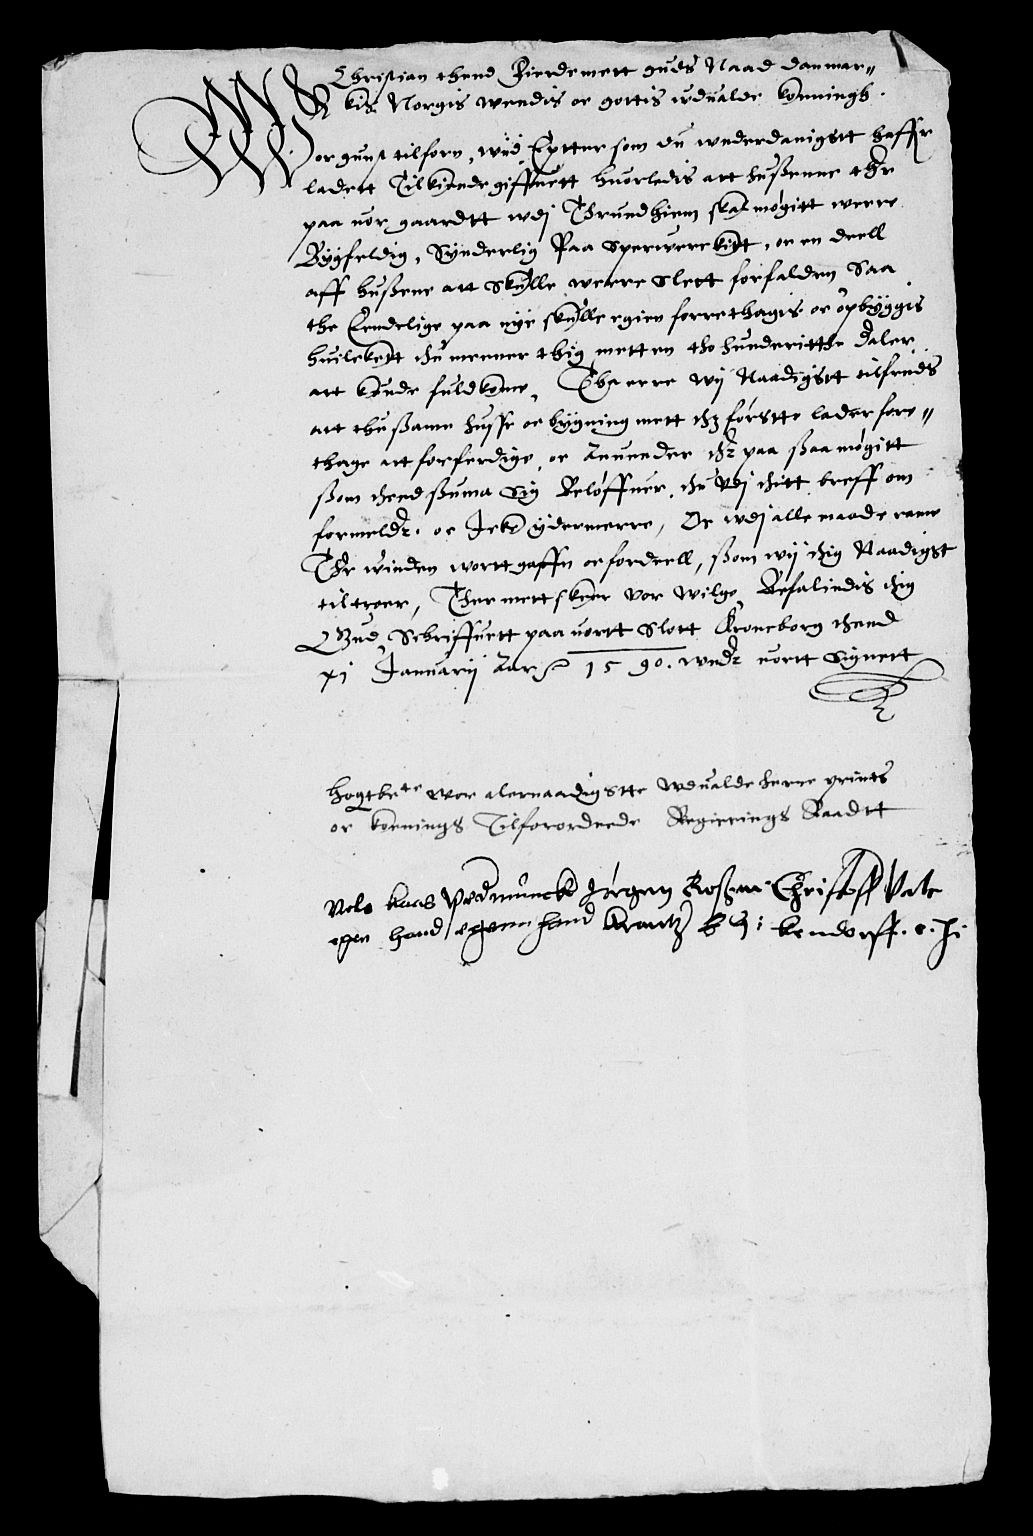 Christian thend Fierde mett guds Naad danmar=
kis Norgis wendis oc gottis vduald konningh.
Wor gunst tilforn, wiid, Epttersom du wnderdanigstt haffr
ladett Tilkiende giffuett huorledis att hußenne thr
paa uor gaardtt wdj Thrundhiem skal møgitt werre
Bygfeldig, Synderlig Paa Sperwerckitt, oc en deell
aff hußene att Skulle werre slett forfalden Saa
the Eendelige paa nye skulle igien forrethagis oc opbyggis
huilckett thu mener thig mett en tho hunderitthe daler
att kunde fuldkome, Tha erre wij Naadigstt tilfreds
att thu ßame huße oc bygning mett thz første lader fore=
thage att forferdige, oc Anuender thr paa ßaa møgitt
ßom thend ßuma sig Beløffuer, thu wdj thitt breff om
formeldr. oc Icke ydermerre, Oc wdj alle maade rame
Thr winden wortt gaffn oc fordeell, ßom wij thig Naadigst
tiltroer, Thermett skeer vor wilge, Befalindis thig
Gud, Schriffuett paa uortt Slott Kroneborg thend
xj Januarij Aar 1590. wndr uortt Signett
høgtbete wor alernaadigstte wduald herre printz
oc konnings Tilforordnede Regierings Raadtt
Nels kaas Pedr munck Jørgen Roßen Christoff Valc
egen hand egenn hand krantz kendorff. e. h